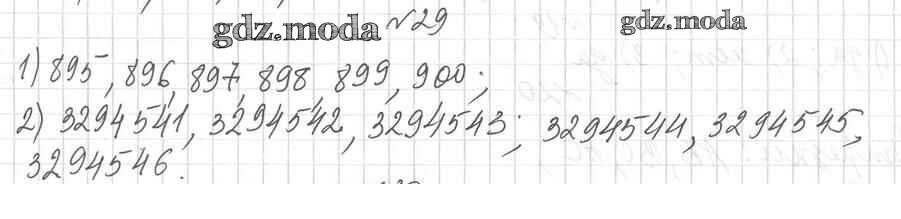 gdz.moda №29 gdz.moda
1) 895, 896, 897, 898 899, 900;
2) 3294541, 3294542, 3294543; 3294544, 3294545,
3294546.